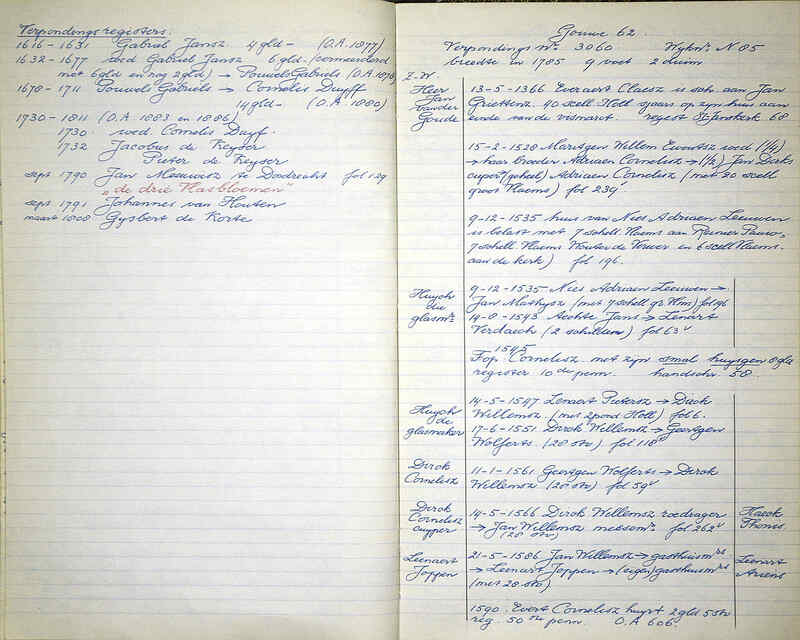 Verpondings registers:
1616 - 1631 Gabriel Jansz. 4 gld - (O.A. 1877)
1632 - 1677 wed Gabriel Jansz 6 gld. (vermeerderd
met 6 gld en nog 2 gld) → Pouwels Gabriels (O.A. 1878)
1678 - 1711 Pouwels Gabriels → Cornelis Duyff
14 gld - (O.A. 1880)
1730 - 1811 (O.A. 1883 en 1886)
1730 wed Cornelis Duyf.
1732 Jacobus de Keyser
Pieter de Keyser
sept 1790 Jan Meauwisz te Dordrecht fol 129
"de drie Vlasbloemen"
sept 1791 Johannes van Houten
maart 1808 Gysbert de Korte
Gouwe 62.
Verpondings no. 3060. Wykno. N 85
breedte in 1785 9 voet 2 duim
Z.W.
Heer Jan vander Goude
13-5-1366 Everaert Claesz is sch. aan Jan
Griettenz. 40 scell. Holl sjaers op zyn huis aan
einde van de vismarct. regest St Janskerk 68
15-2-1528 Maritgen Willem Evertsz wed (1/4)
→ haar broeder Adriaen Cornelisz → (1/2) Jan Dirks
cuper (geheel) Adriaen Cornelisz (met 20 scell
groot Vlaems) fol 239
9-12-1535 huis van Nies Adriaen Leeuwen
is belast met 7 schell. Vlaems aan Reinier Pauw,
7 schell Vlaems Wouter de Verwer en 6 scell Vlaems
aan de kerk) fol 196.
Huych die glasmr.
9-12-1535 Nies Adriaen Leeuwen →
Jan Mathysz (met 7 schell gr Vlms) fol 196
14-8-1543 Aechte Jans → Lenart
Verdaech (2 schilden) fol 63v
1545
Fop Cornelisz met zyn smal huysgen 8 gld
register 10de penn. handschr. 58.
Huych de glasmaker
14-5-1547 Lenaert Pietersz → Dirck
Willemsz (met 2 pond Holl) fol 6.
17-6-1551 Dirck Willemsz → Geertgen
Wolferts (28 stv) fol 118v
Dirck Cornelisz
11-1-1561 Geertgen Wolferts → Dirck
Willemsz (28 stv) fol 59v
Dirck Cornelisz cuyper
14-5-1566 Dirck Willemsz roedrager
→ Jan Willemsz messemr. fol 262v
(28 stv)
Haeck Thonis
Leenaert Joppen
21-5-1586 Jan Willemsz → gasthuismrs
→ Leenaert Joppen → (eigen) gasthuismrs
(met 28 stv)
Leenart Ariens
1590. Evert Cornelisz huyrt 2 gld 5 stv
reg. 50ste penn. O.A. 606.